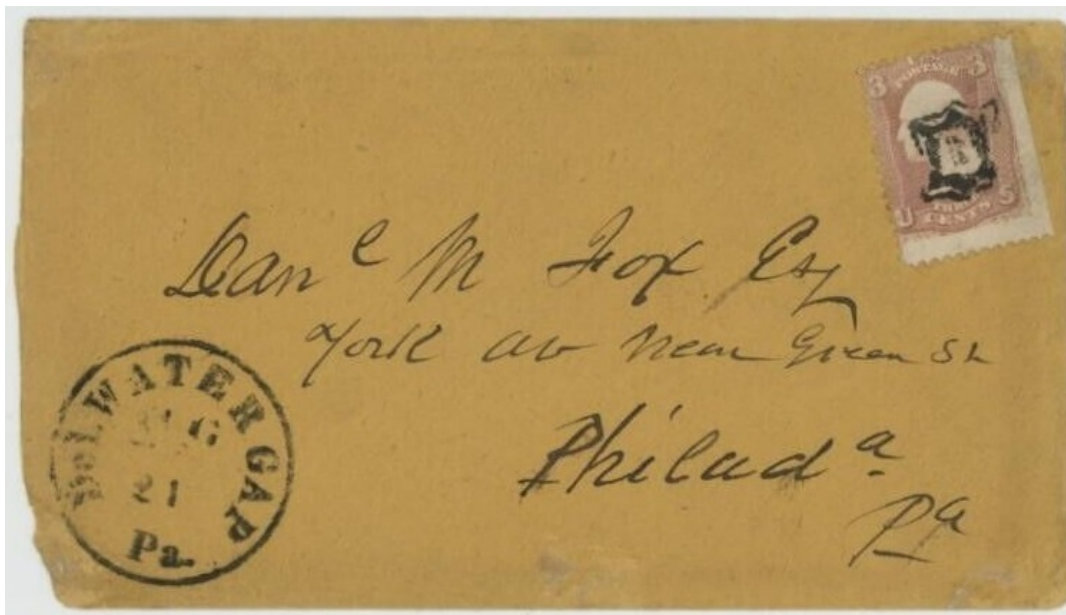 3 3
POSTAGE
U S
CENTS
Dan l M Fox Esq
York av near Green St
Philad a
Pa
Del WATER GAP
21
Pa.